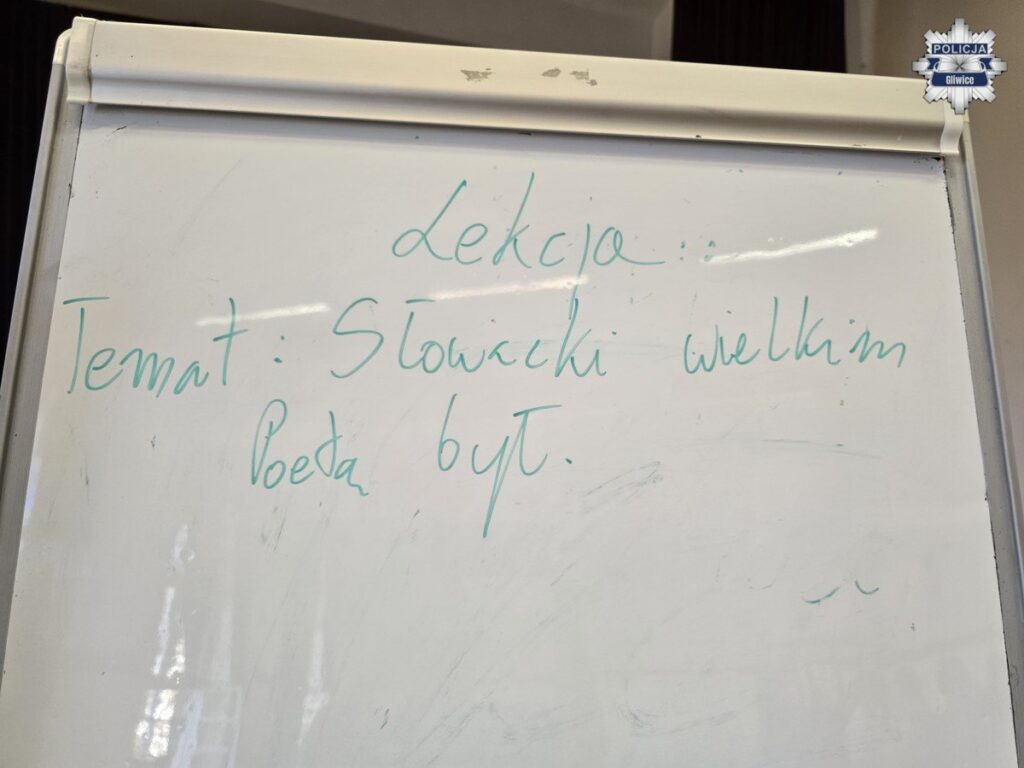 POLICJA
Gliwice
Lekcja ::
Temat: Słowacki wielkim
Poetą był.